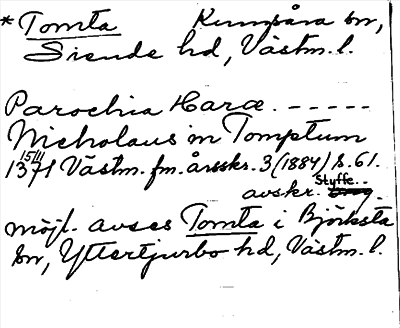 * Tomta Kungsåra sn,
Siende hd, Västm. l.
Parochia Haræ. - - - - -
Nicholaus in Tomptum
15/11 1371 Västm. fm. årsskr. 3 (1884) s. 61.
avskr. Styffe..
möjl. avses Tomta i Björksta
sn, Yttertjurbo hd, Västm. l.